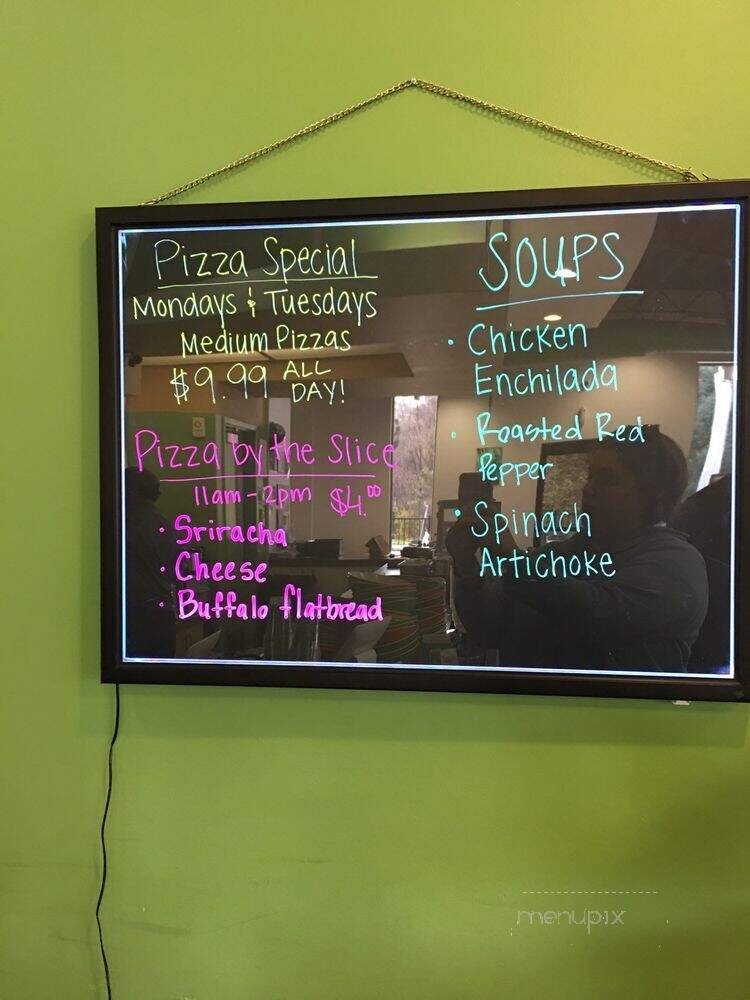 Pizza Special
Mondays & Tuesdays
Medium Pizzas
$9.99 ALL DAY!
Pizza by the Slice
11am-2pm $4.00
• Sriracha
• Cheese
• Buffalo flatbread
SOUPS
• Chicken
Enchilada
• Roasted Red
Pepper
• Spinach
Artichoke
menupix